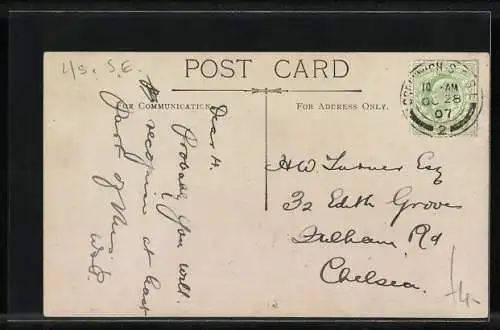 L/S. S.E.
POST CARD
FOR COMMUNICATION
FOR ADDRESS ONLY.
GREENWICH S.O. S.E
10 AM
OC 28
07
2
Dear H.
Probably you will
recognise at least
part of this.
HW Turner Esq
32 Edith Grove
Fulham Rd
Chelsea.
£4